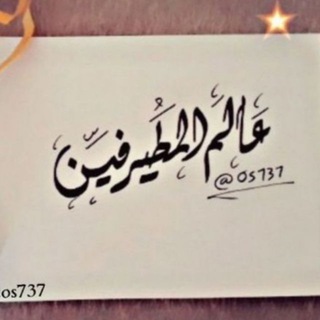 عالم المطيرفين
@os737
os737